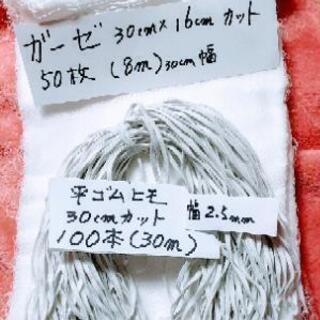 ガーゼ 30cm×16cmカット
50枚 (8m) 30cm幅
平ゴムヒモ
30cmカット
100本(30m)
幅2.5mm